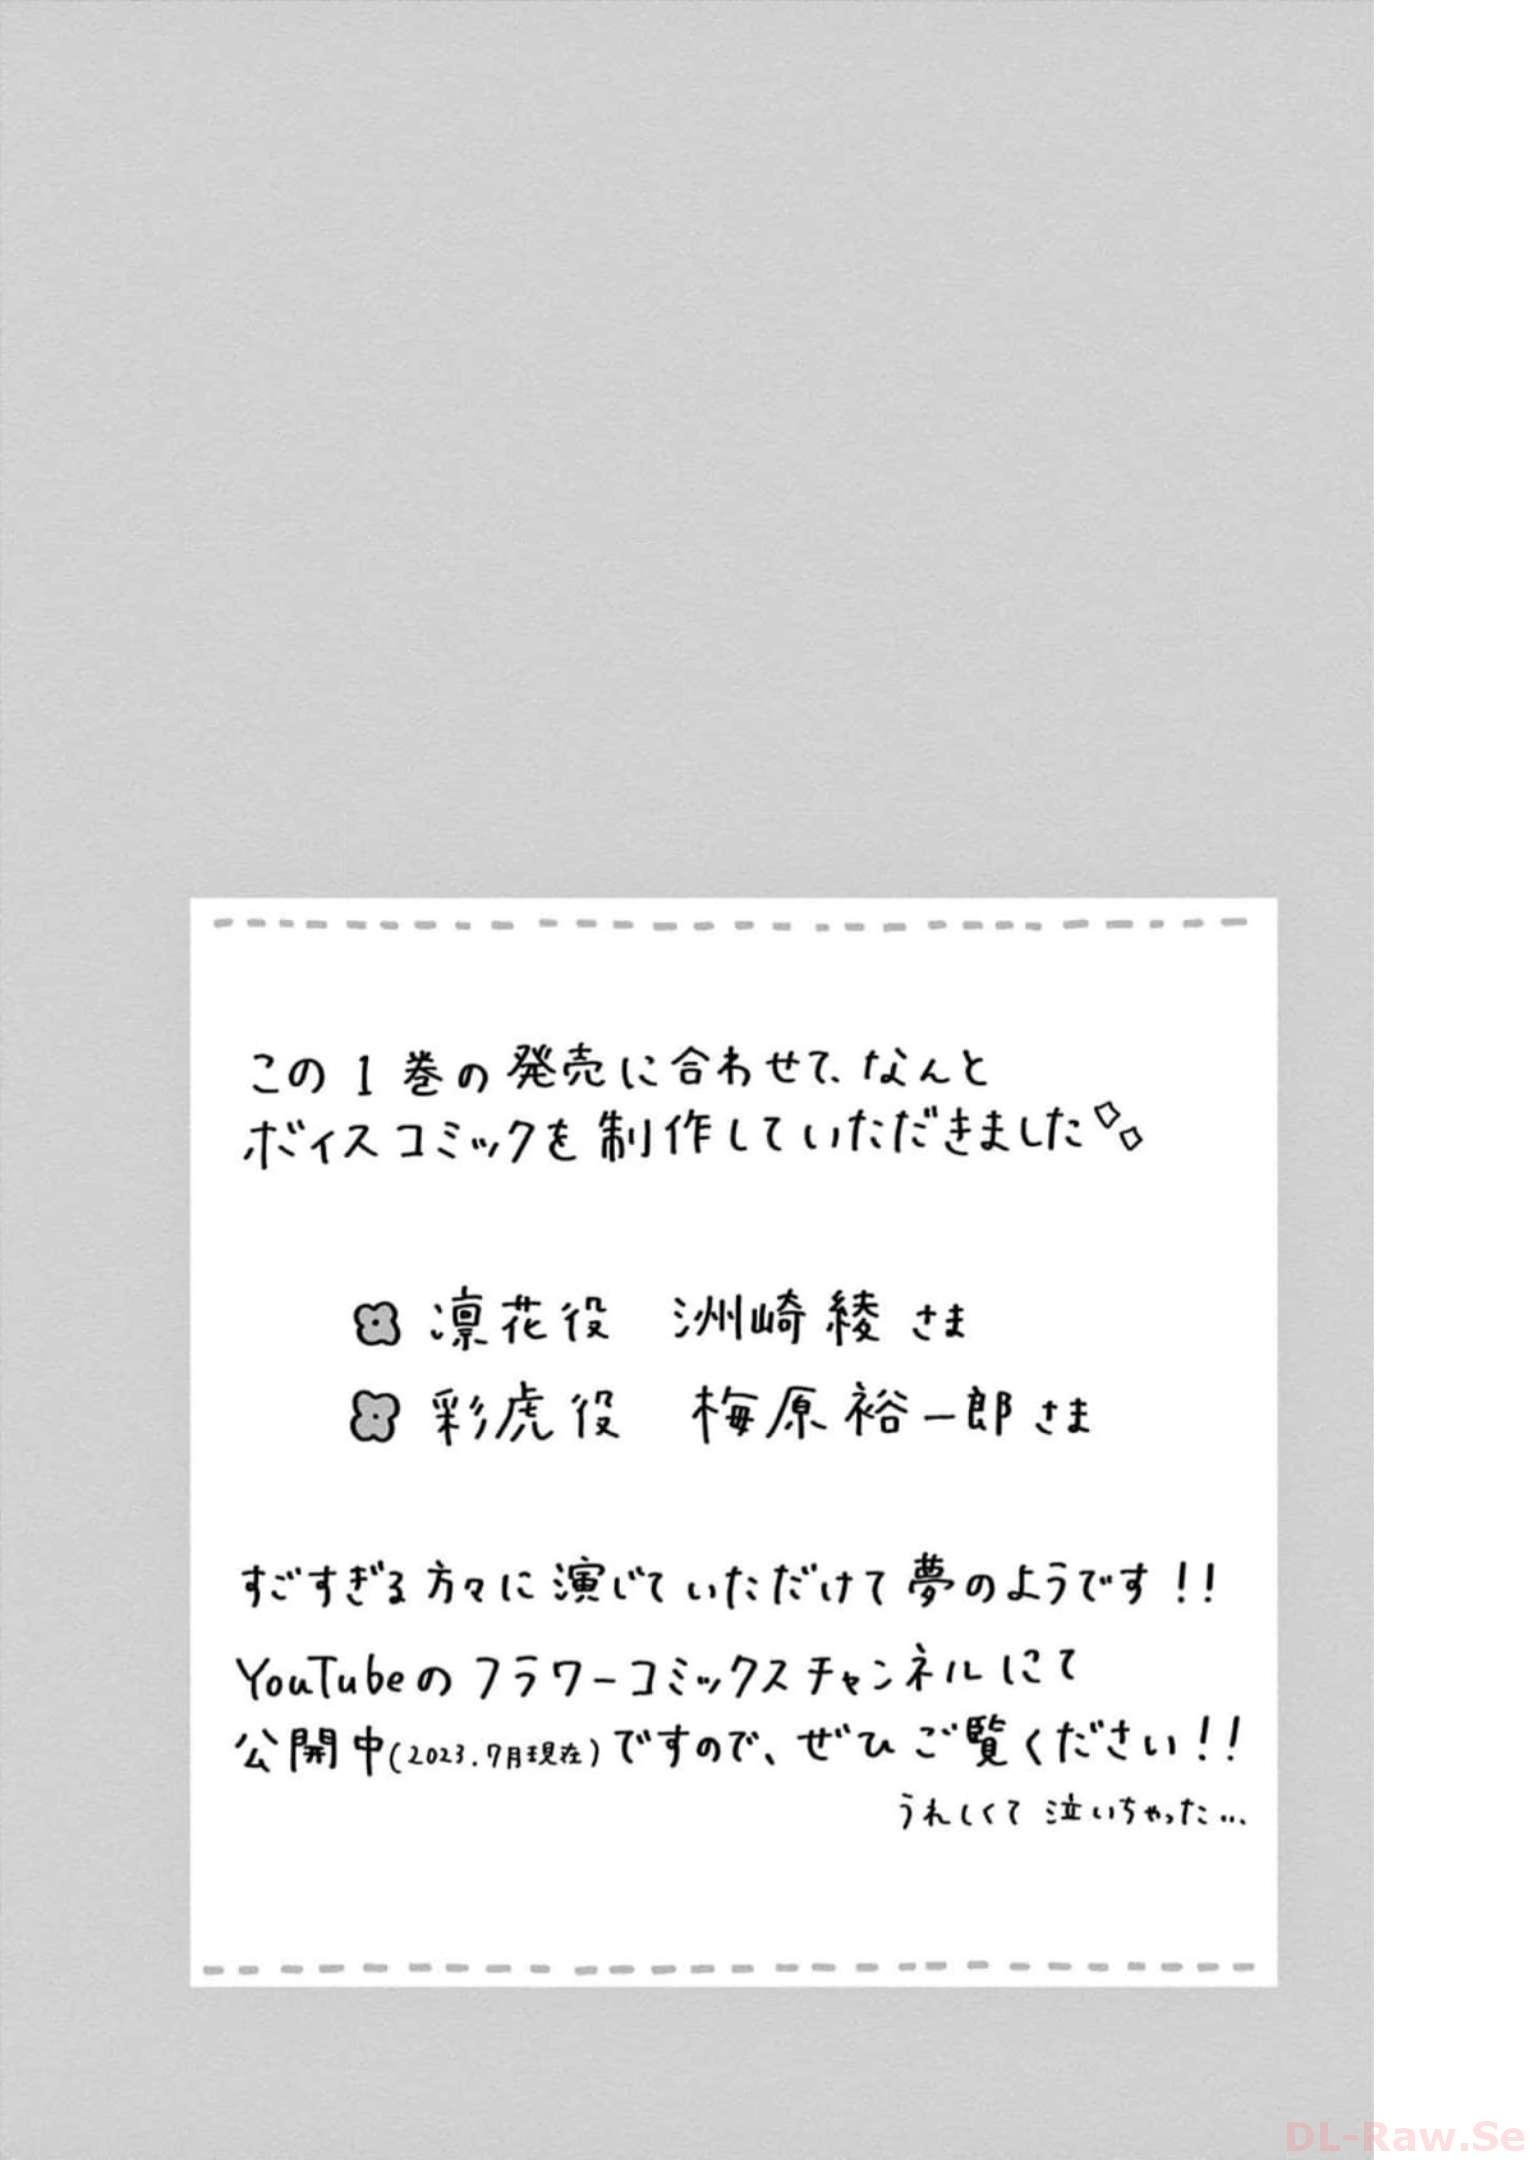 この1巻の発売に合わせて、なんと
ボイスコミックを制作していただきました
凛花役 洲崎綾さま
彩虎役 梅原裕一郎さま
すごすぎる方々に演じていただけて夢のようです!!
YouTubeのフラワーコミックスチャンネルにて
公開中(2023.7月現在)ですので、ぜひご覧ください!!
うれしくて泣いちゃった...
DL-Raw.Se